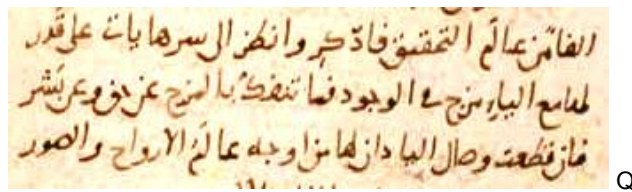 الفا من عالم التحقيق فادكر وانظر الى سرها يات على قدر
لها مع الياء مزج في الوجود فما تنفك بالمزج عن حق وعن بشر
فان قطعت وصال اليا دان لها من اوجه عالم الارواح والصور